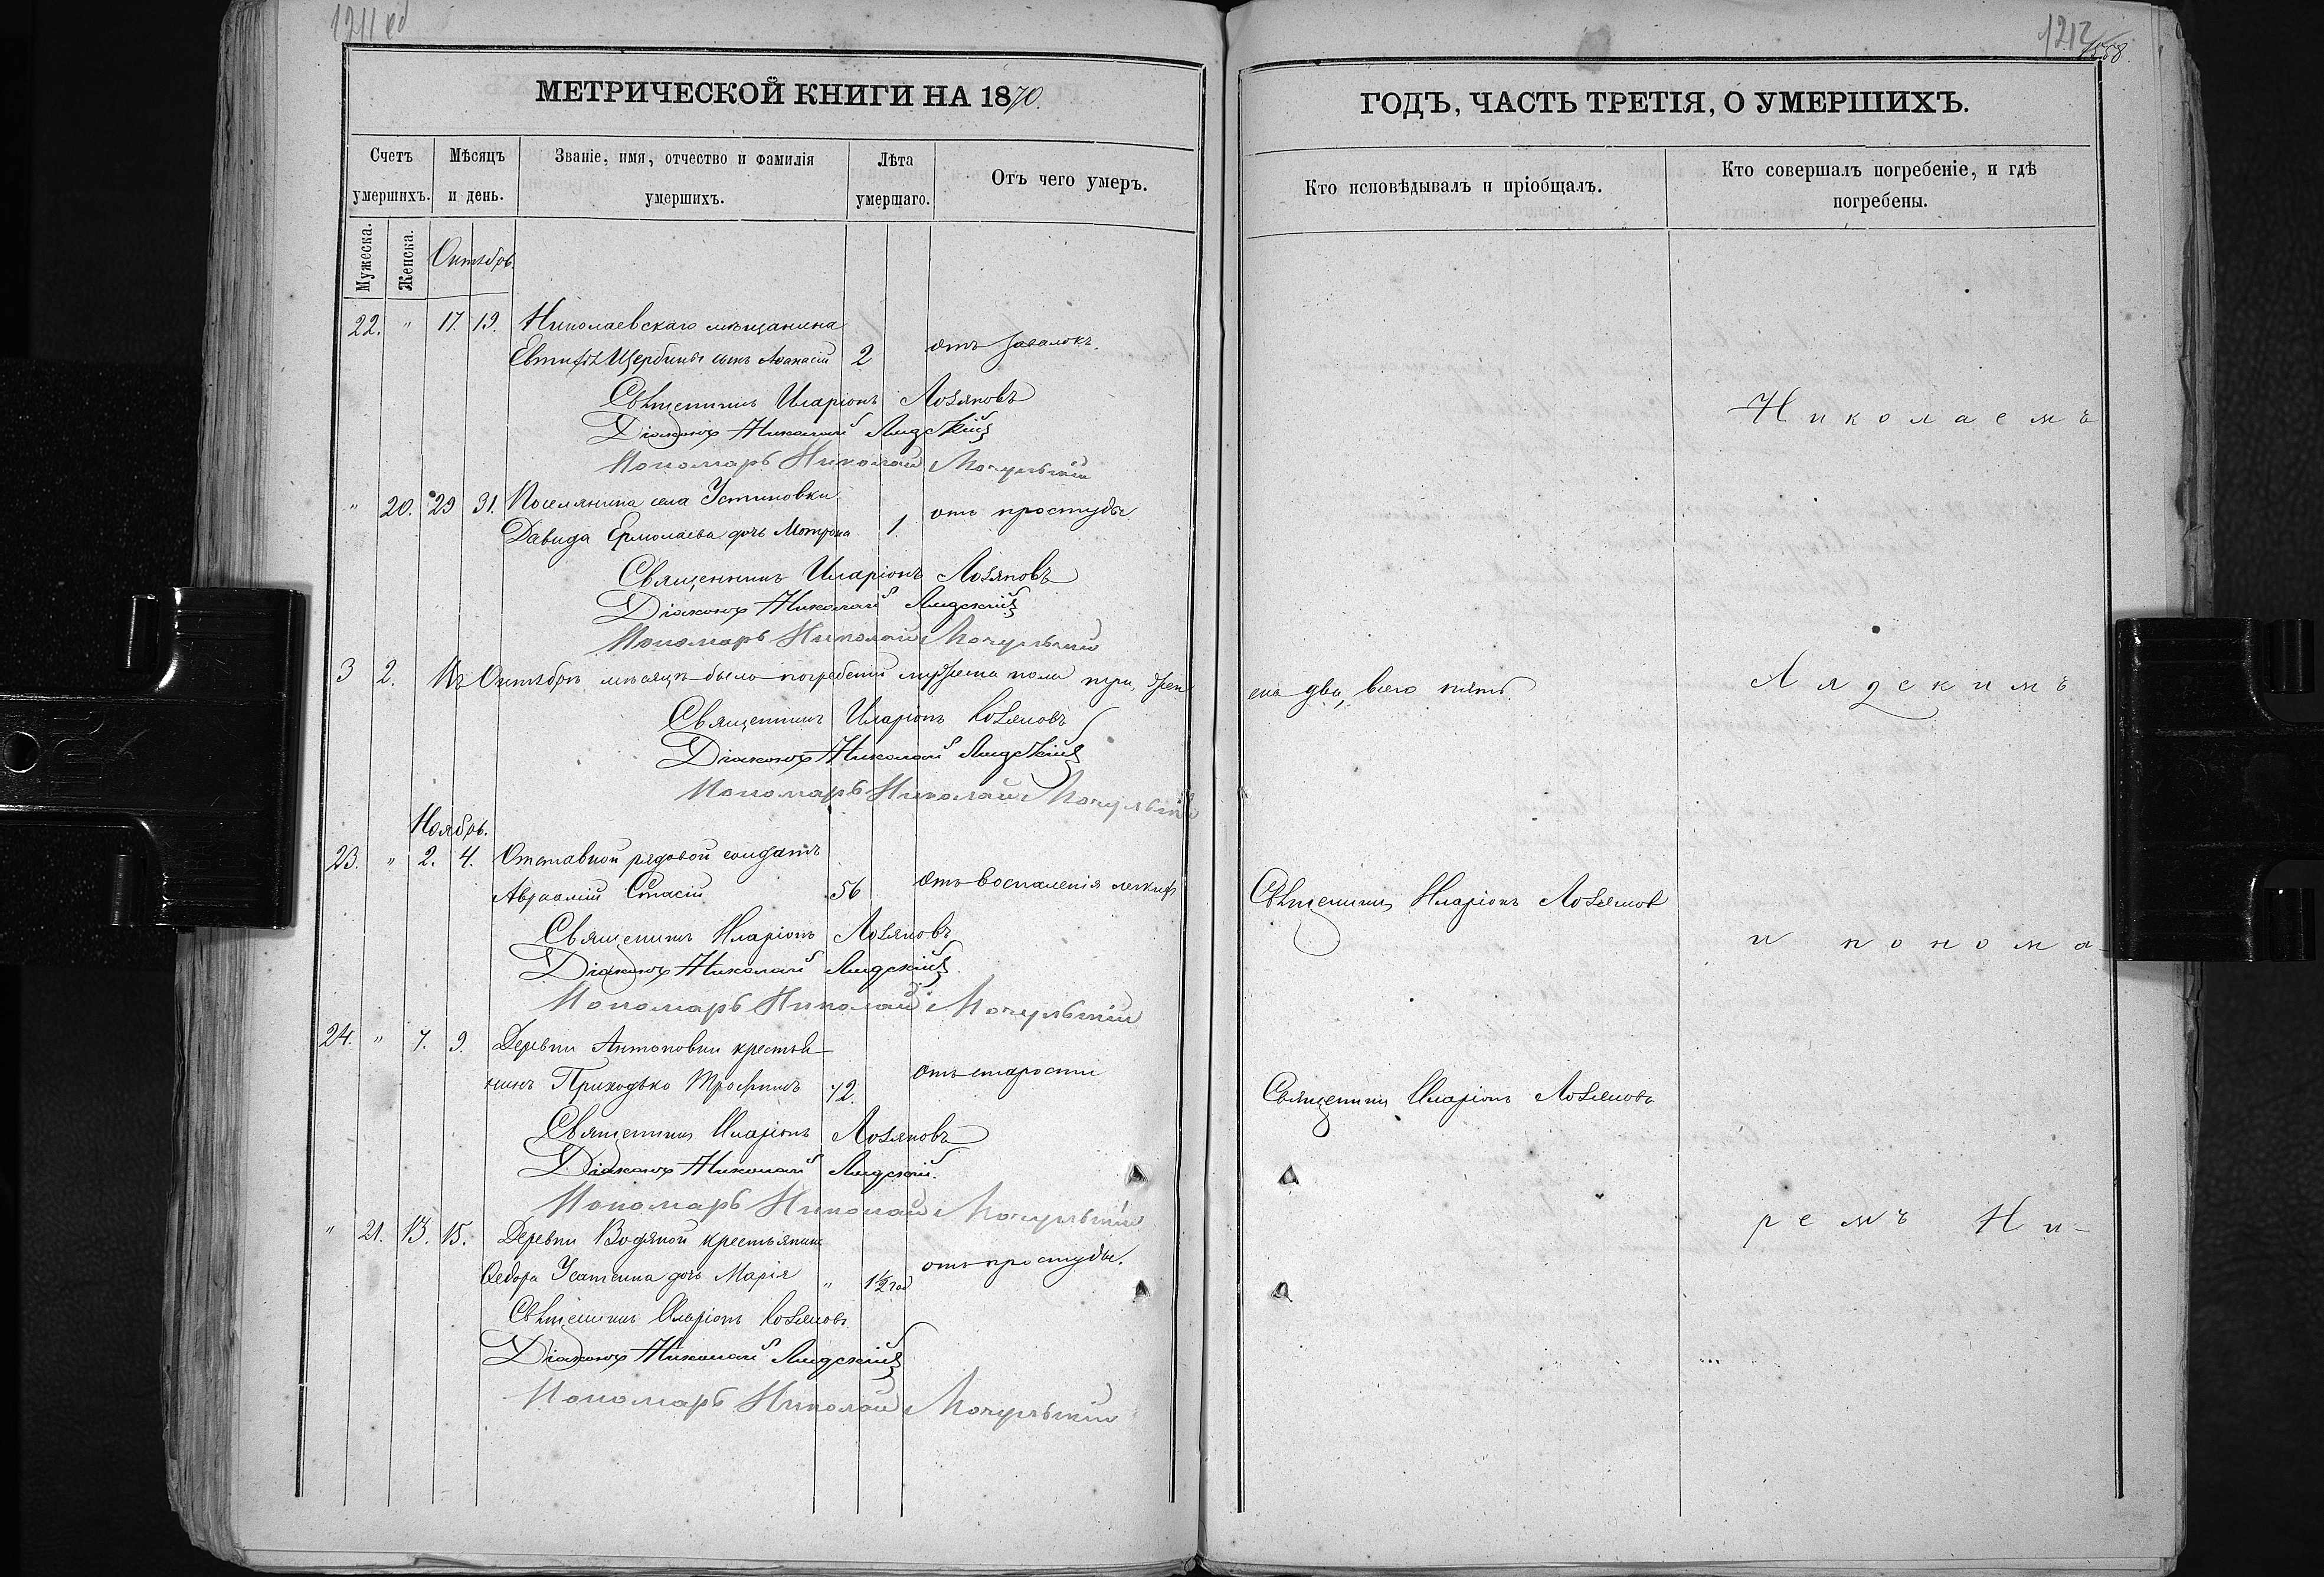 1211 об
МЕТРИЧЕСКОЙ КНИГИ НА 1870.
Счетъ умершихъ.
Мѣсяцъ и день.
Званіе, имя, отчество и фамилія умершихъ.
Лѣта умершаго.
Отъ чего умеръ.
Мужеска.
Женска.
Октябрь.
22. " 17. 19. Николаевскаго мѣщанина
Щербины сынъ Афанасій 2 отъ
Священникъ Иларіонъ
Діаконъ Николай Лядскій
Пономарь Николай Мочульскій
" 20. 29 31. Поселянина села Устиновки
Давида Ермолаева дочь Мотрона 1. отъ простуды
Священникъ Иларіонъ
Діаконъ Николай Лядскій
Пономарь Николай Мочульскій
3 2. Въ Октябрѣ мѣсяцѣ было погребеній мужеска пола три, жен
Священникъ Иларіонъ
Діаконъ Николай Лядскій
Пономарь Николай Мочульскій
Ноябрь.
23. " 2. 4. Отставной рядовой солдатъ
Авраамій 56 отъ воспаленія легкихъ
Священникъ Иларіонъ
Діаконъ Николай Лядскій
Пономарь Николай Мочульскій
24. " 7. 9. Деревни Антоновки крестья-
нинъ Приходько Трофимъ 72. отъ старости
Священникъ Иларіонъ
Діаконъ Николай Лядскій.
Пономарь Николай Мочульскій
" 21. 13. 15. Деревни Водяной крестьянина
Федора дочь Марія " 1½ год отъ простуды.
Священникъ Иларіонъ
Діаконъ Николай Лядскій
Пономарь Николай Мочульскій
1212
1558.
ГОДЪ, ЧАСТЬ ТРЕТІЯ, О УМЕРШИХЪ.
Кто исповѣдывалъ и пріобщалъ.
Кто совершалъ погребеніе, и гдѣ погребены.
Николаемъ
ска два, всего пять.
Лядскимъ
Священникъ Иларіонъ
и понома-
Священникъ Иларіонъ
ремъ Ни-